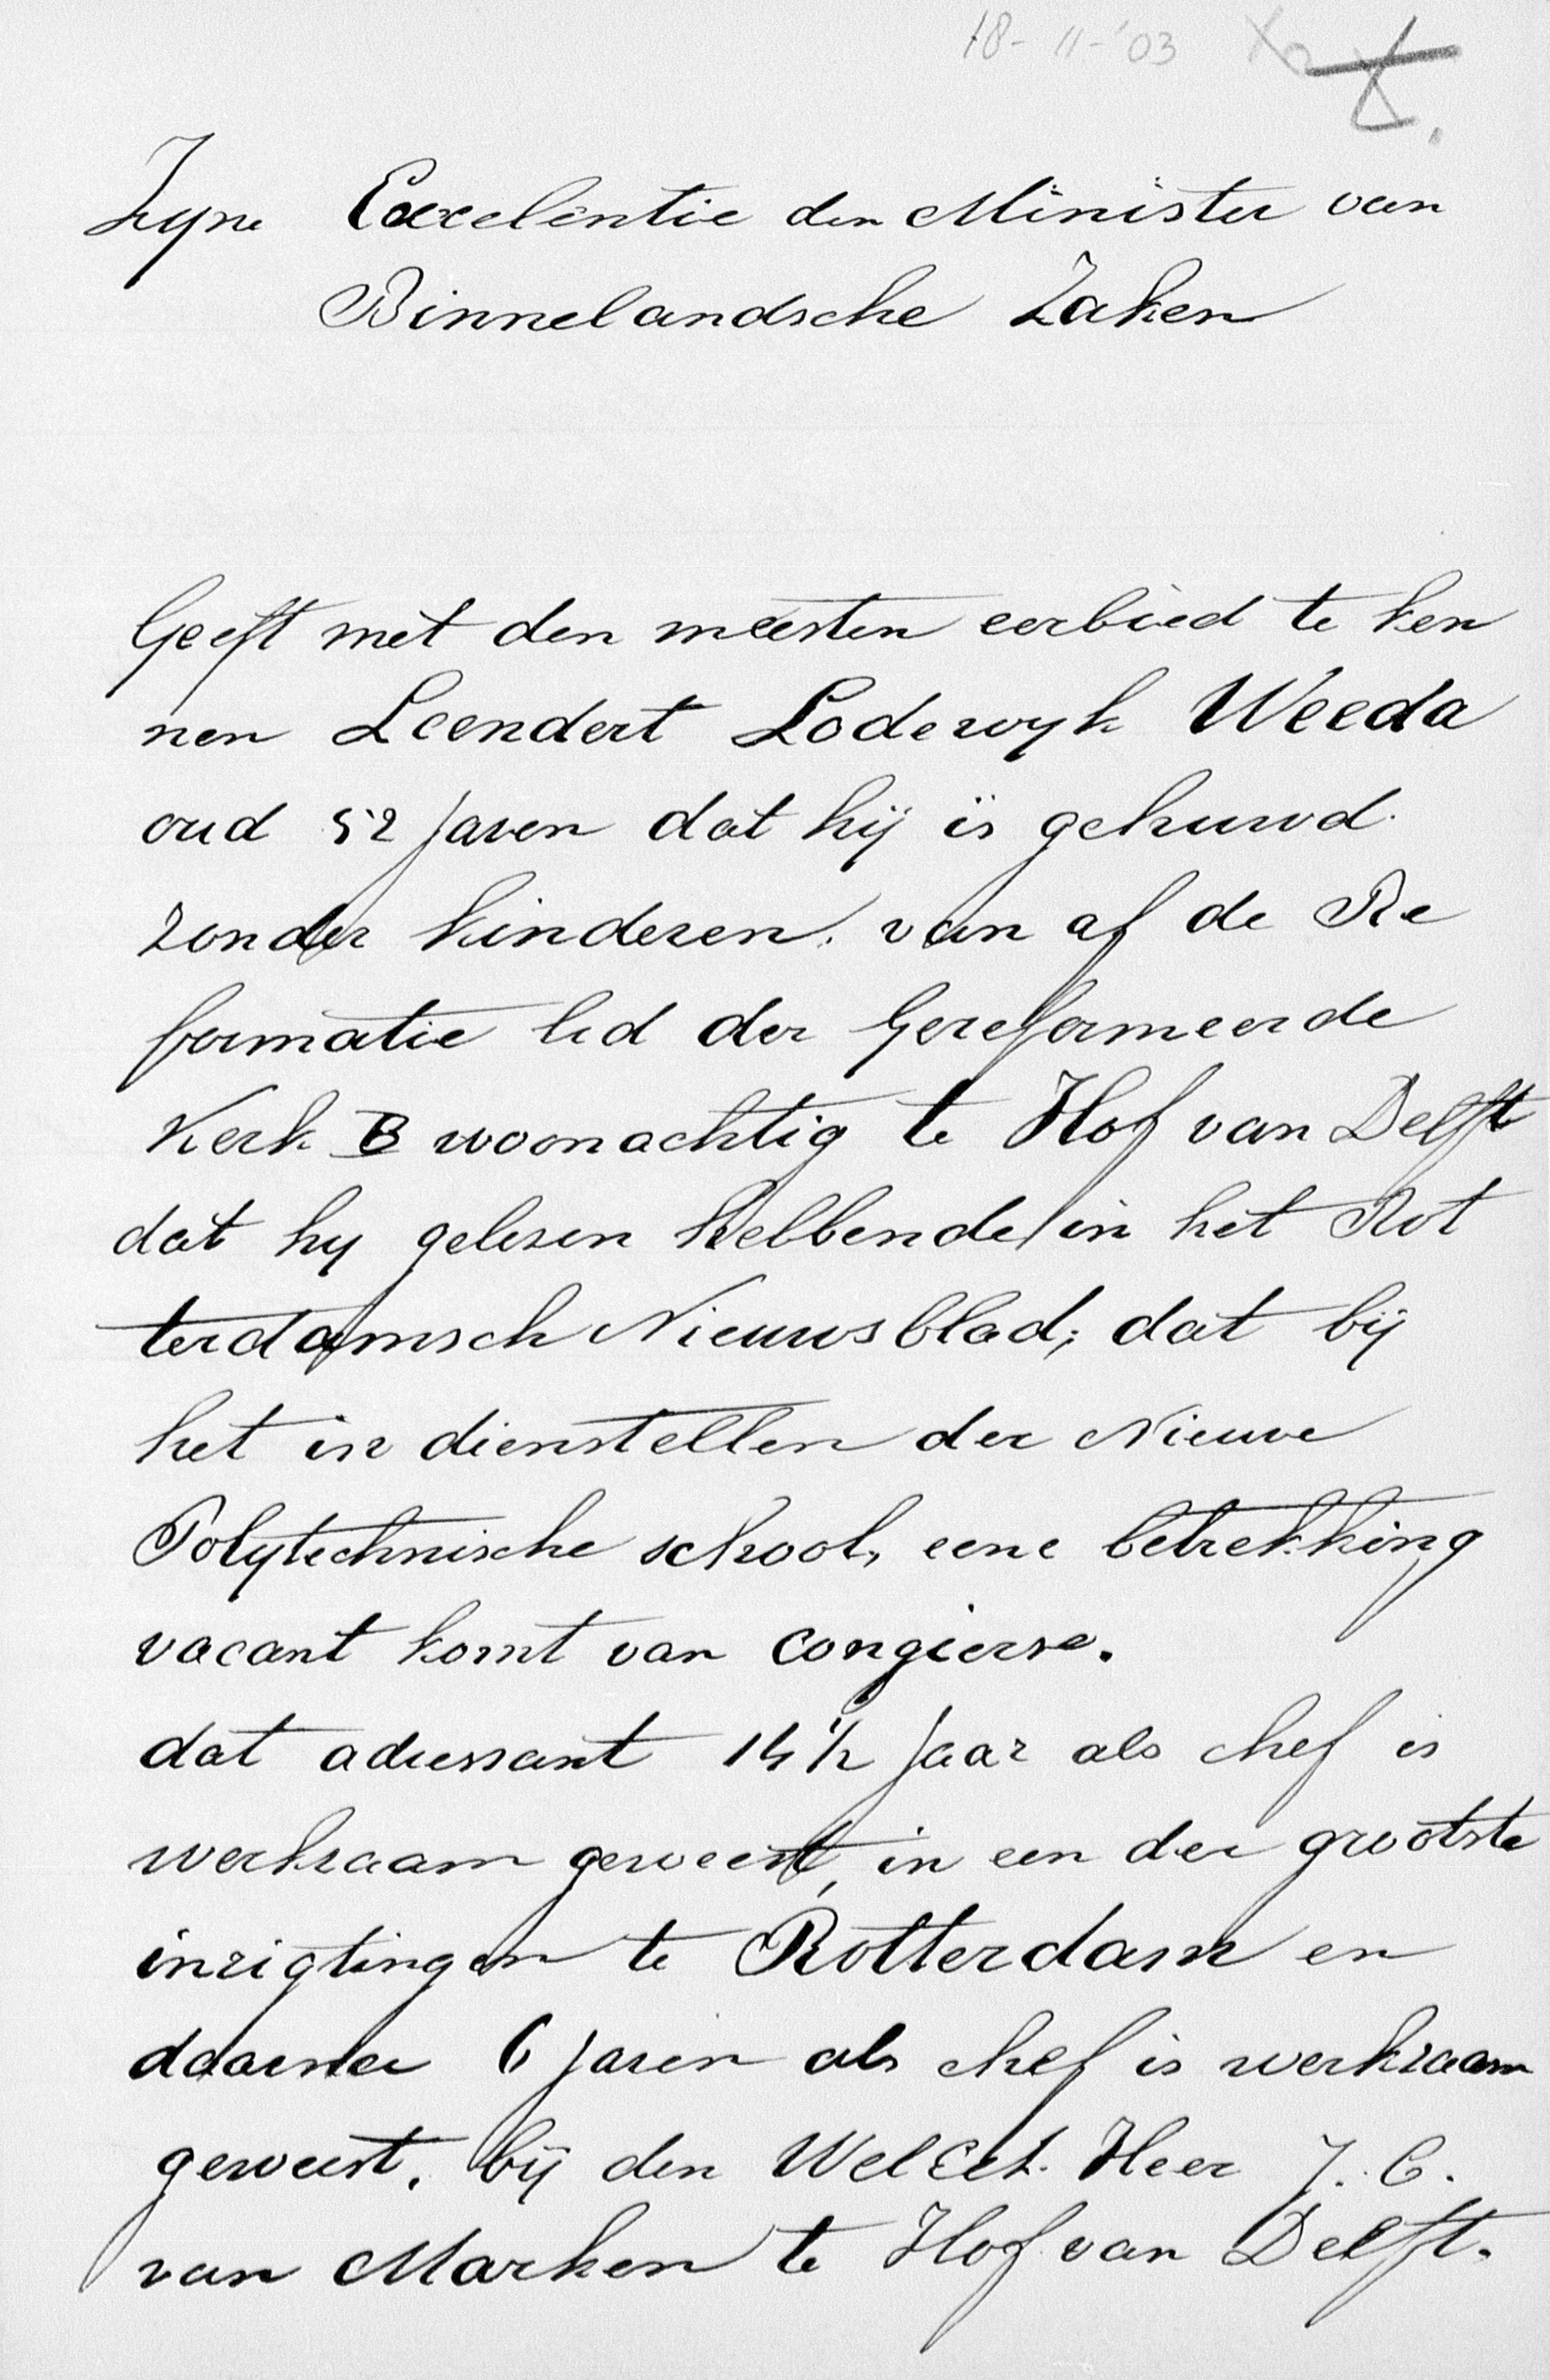 18-11-'03
Zyne Excelentie den Minister van
Binnelandsche Zaken
Geeft met den meesten eerbied te ken
nen Leendert Lodewyk Weeda
oud 52 jaren dat hij is gehuwd.
zonder kinderen. van af de Re
formatie lid der Gereformeerde
Kerk B woonachtig te Hof van Delft
dat hy gelesen hebbende in het Rot
terdamsch Nieuwsblad; dat bij
het in dienstellen der Nieuwe
Polytechnische school, eene betrekking
vacant komt van congierse.
dat adressant 14 1/2 jaar als chef is
werkzaam geweest, in een der grootste
inrigtingen te Rotterdam en
daarna 6 jaren als chef is werkzaam
geweest. bij den WelEd. Heer J. C.
van Marken te Hof van Delft.